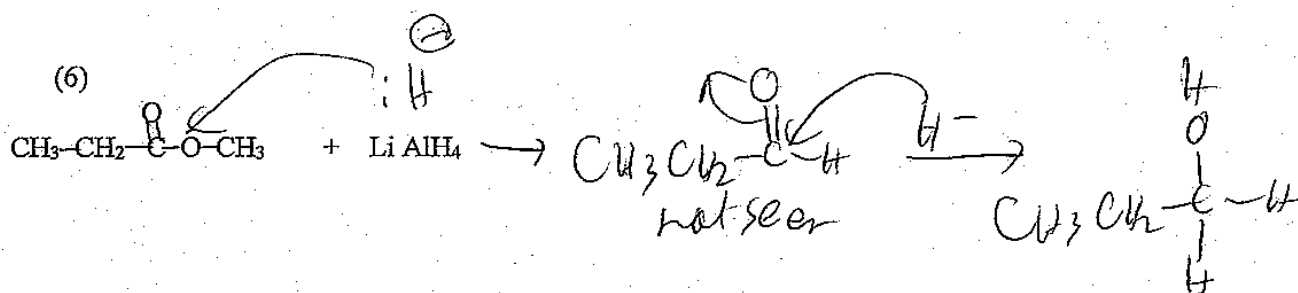 (6)
:H ⊖
CH₃-CH₂-C(=O)-O-CH₃ + LiAlH₄ → CH₃CH₂-C(=O)-H H⁻ → CH₃CH₂-C(OH)(H)-H
not seen